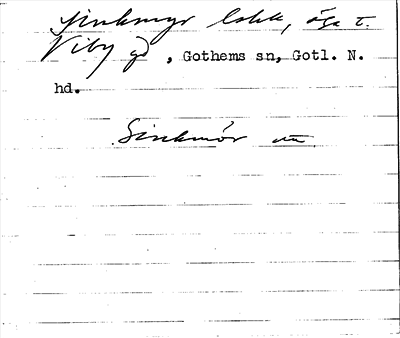 Sinkmyr lokk, äga t.
Viby gd, Gothems sn, Gotl. N.
hd.
Sinkmór